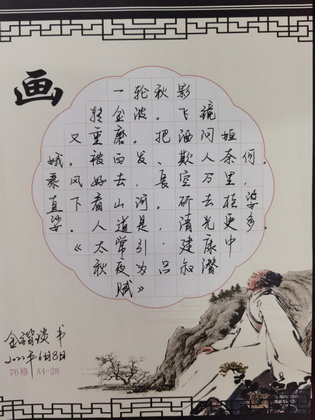 画
一轮秋影
转金波。飞镜
又重磨。把酒问姮
娥。被白发、欺人奈何。
乘风好去,长空万里,
直下看山河。斫去桂婆
娑。人道是,清光更多。
《太常引·建康中
秋夜为吕叔潜
赋》
书
76格 A4-28